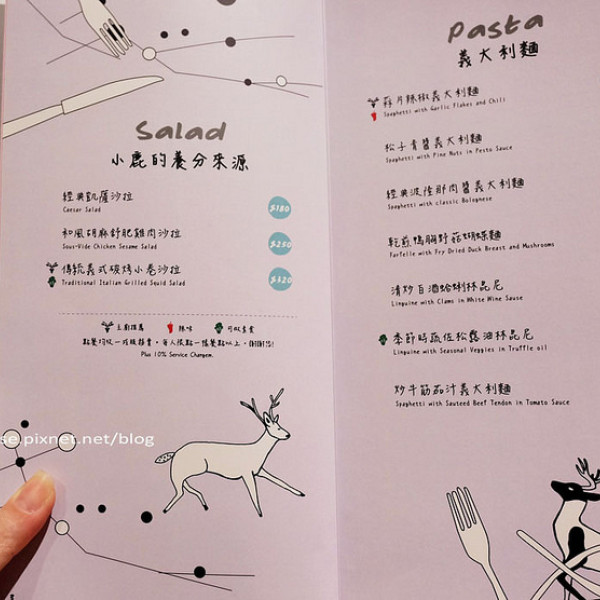 Salad
小鹿的養分來源
經典凱薩沙拉
Caesar Salad
$180
和風胡麻舒肥雞肉沙拉
Sous-Vide Chicken Sesame Salad
$250
傳統義式碳烤小卷沙拉
Traditional Italian Grilled Squid Salad
$320
主廚推薦 辣味 可做素食
Plus 10% Service Charge
se.pixnet.net/blog
Pasta
義大利麵
蒜片辣椒義大利麵
Spaghetti with Garlic Flakes and Chili
松子青醬義大利麵
Spaghetti with Pine Nuts in Pesto Sauce
經典波隆那肉醬義大利麵
Spaghetti with classic Bolognese
乾煎鴨胸野菇蝴蝶麵
Farfelle with Fry Dried Duck Breast and Mushrooms
清炒白酒蛤蜊林品尼
Linguine with Clams in White Wine Sauce
季節時蔬佐松露油林品尼
Linguine with Seasonal Veggies in Truffle oil
炒牛筋茄汁義大利麵
Spaghetti with Sauteed Beef Tendon in Tomato Sauce